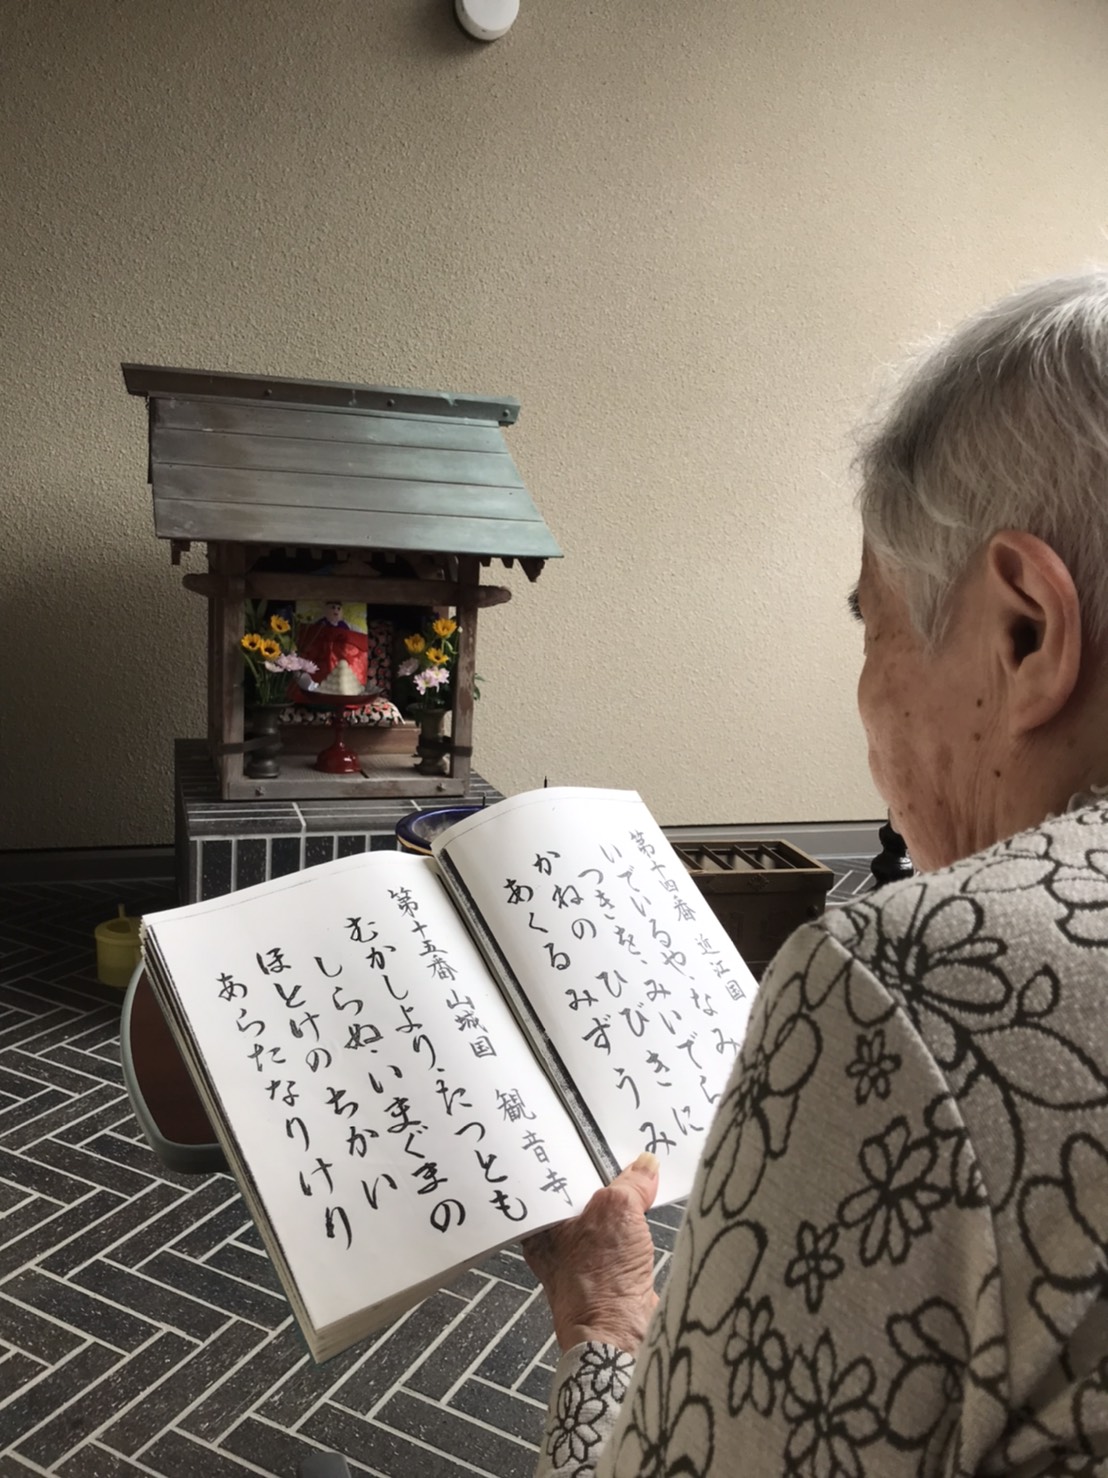 第十四番 近江国
いでいるや、なみ
つきを、みいでら
かねの ひびきに
あくるみずうみ
第十五番 山城国 観音寺
むかしより、たつとも
しらぬ、いまぐまの
ほとけのちかい
あらたなりけり